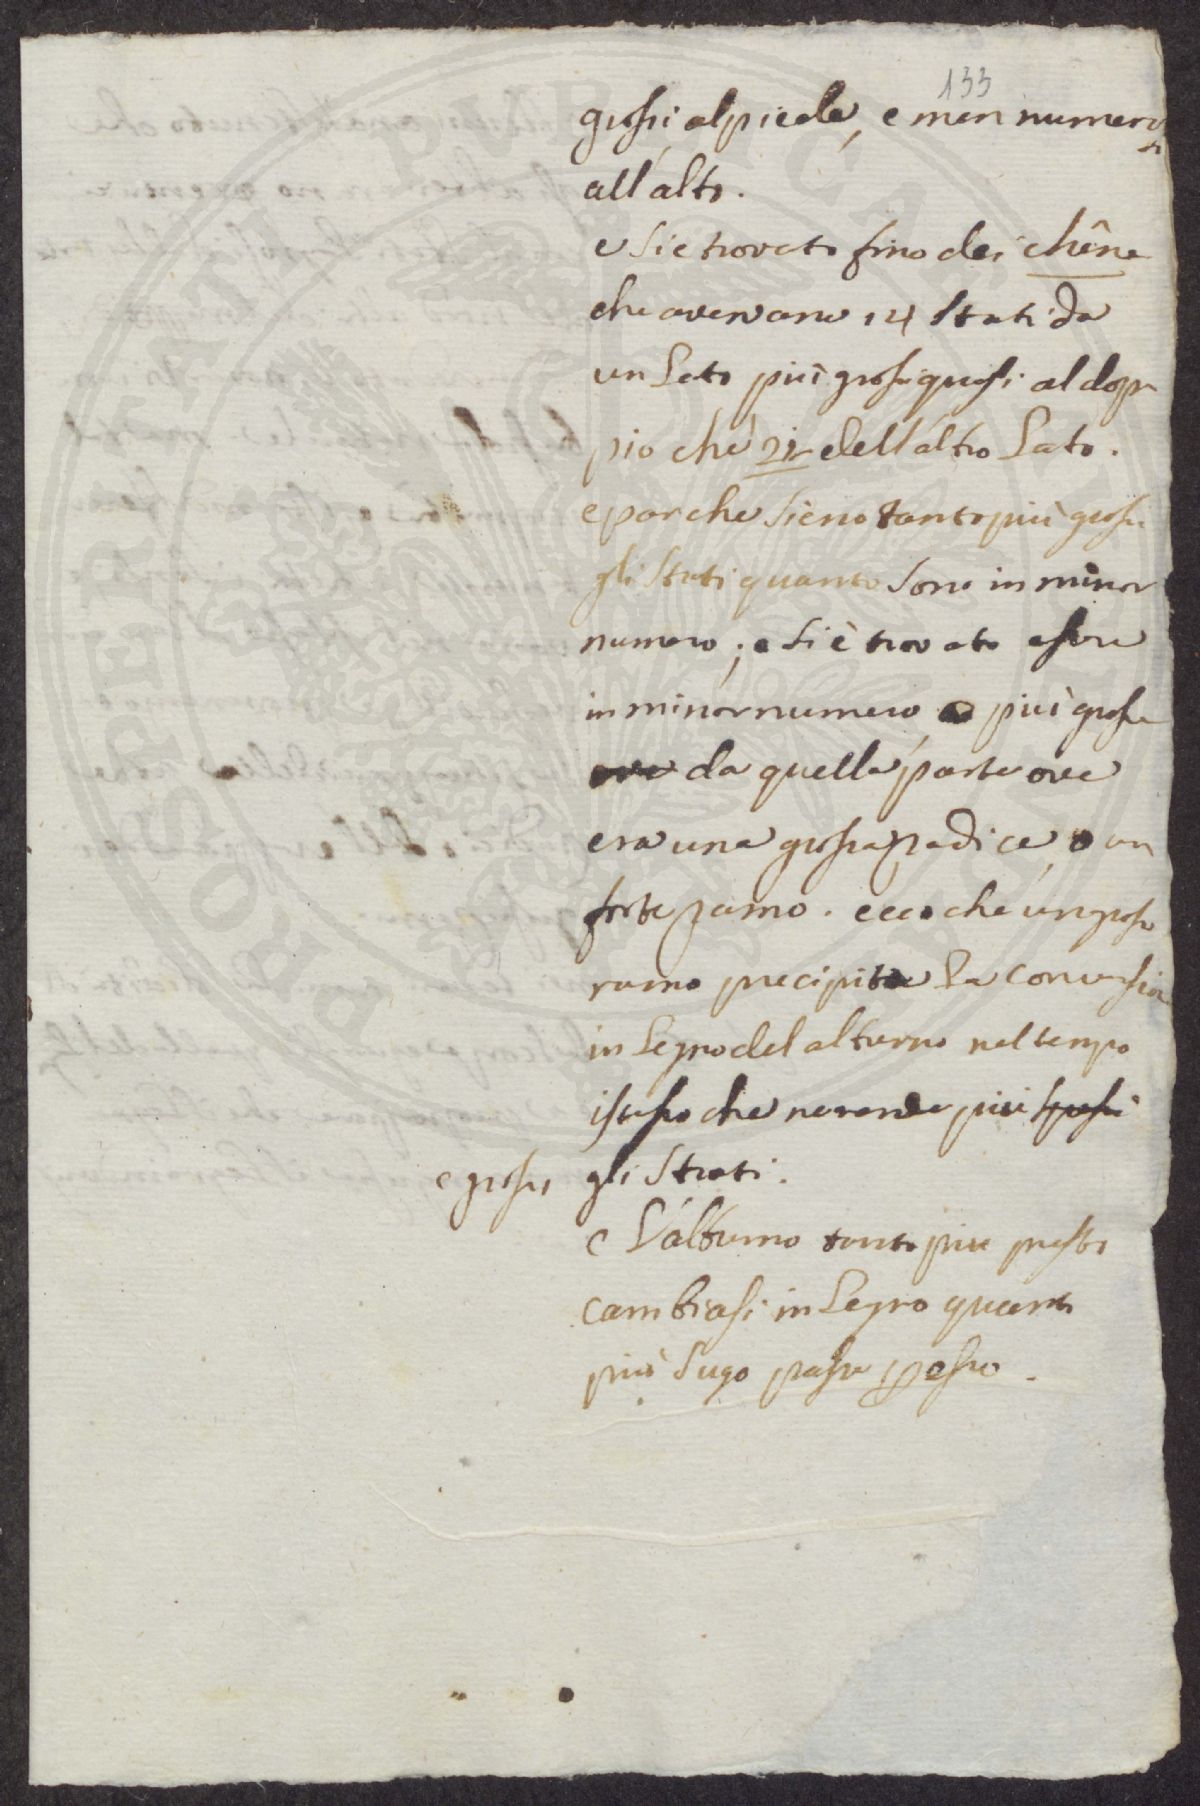 133
grossi al piede, e men numerosi
all'alto.
e si è trovato fino dei chêne
che avevano 14 strati da
un Lato più grossi quasi al dop
pio che 21 dell'altro Lato.
e par che sieno tanto più grossi
gli strati quanto sono in minor
numero; e si è trovato essere
in minor numero, e più grossi
ove da quella parte ove
era una grossa radice, o un
forte ramo. ecco che un grosso
ramo precipita La conversion
in Legno del alburno nel tempo
istesso che ne rende più spessi
e grossi gli strati.
e L'alburno tanto più presto
cambiasi in Legno quanto
più sugo passa p esso.